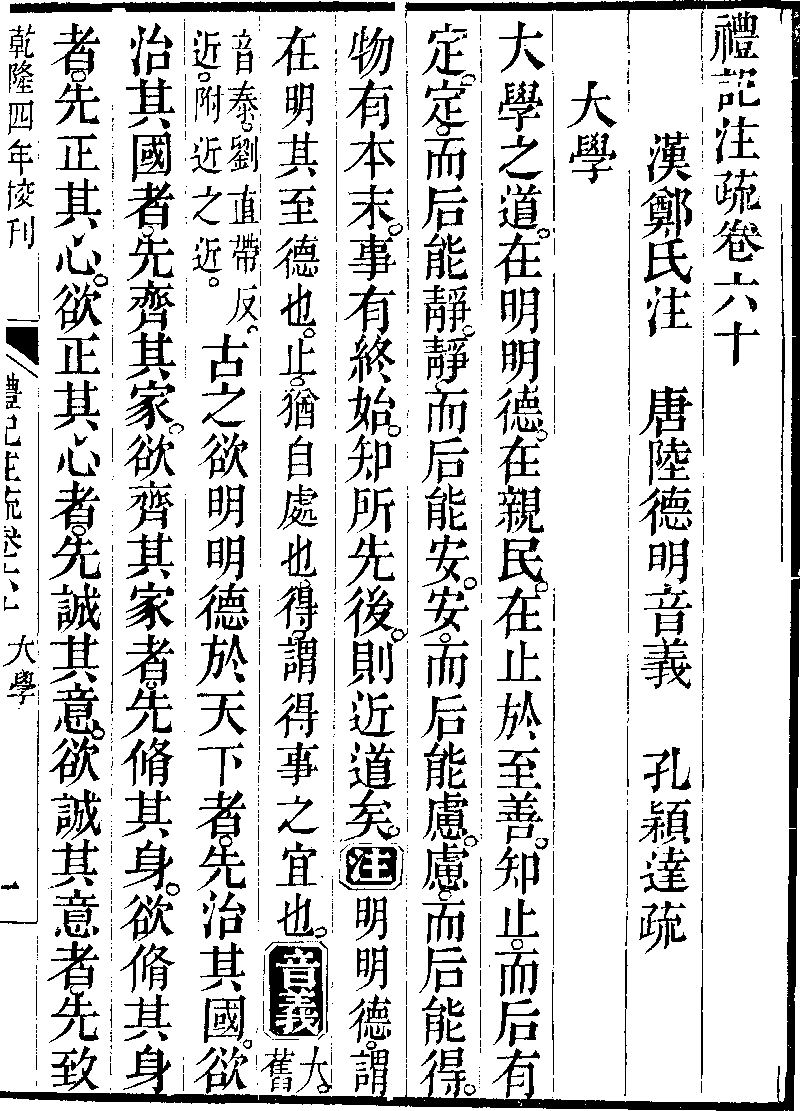 禮記注疏卷六十
漢鄭氏注　唐陸德明音義　孔穎達疏
大學
大學之道。在明明德。在親民。在止於至善。知止。而后有
定。定。而后能靜。靜。而后能安。安。而后能慮。慮。而后能得。
物有本末。事有終始。知所先後。則近道矣。注明明德。謂
在明其至德也。止。猶自處也。得。謂得事之宜也。音義大。舊
音泰。劉直帶反。近。附近之近。古之欲明明德於天下者。先治其國。欲
治其國者。先齊其家。欲齊其家者。先脩其身。欲脩其身
者。先正其心。欲正其心者。先誠其意。欲誠其意者。先致
乾隆四年校刊　禮記注疏卷六十　大學　一